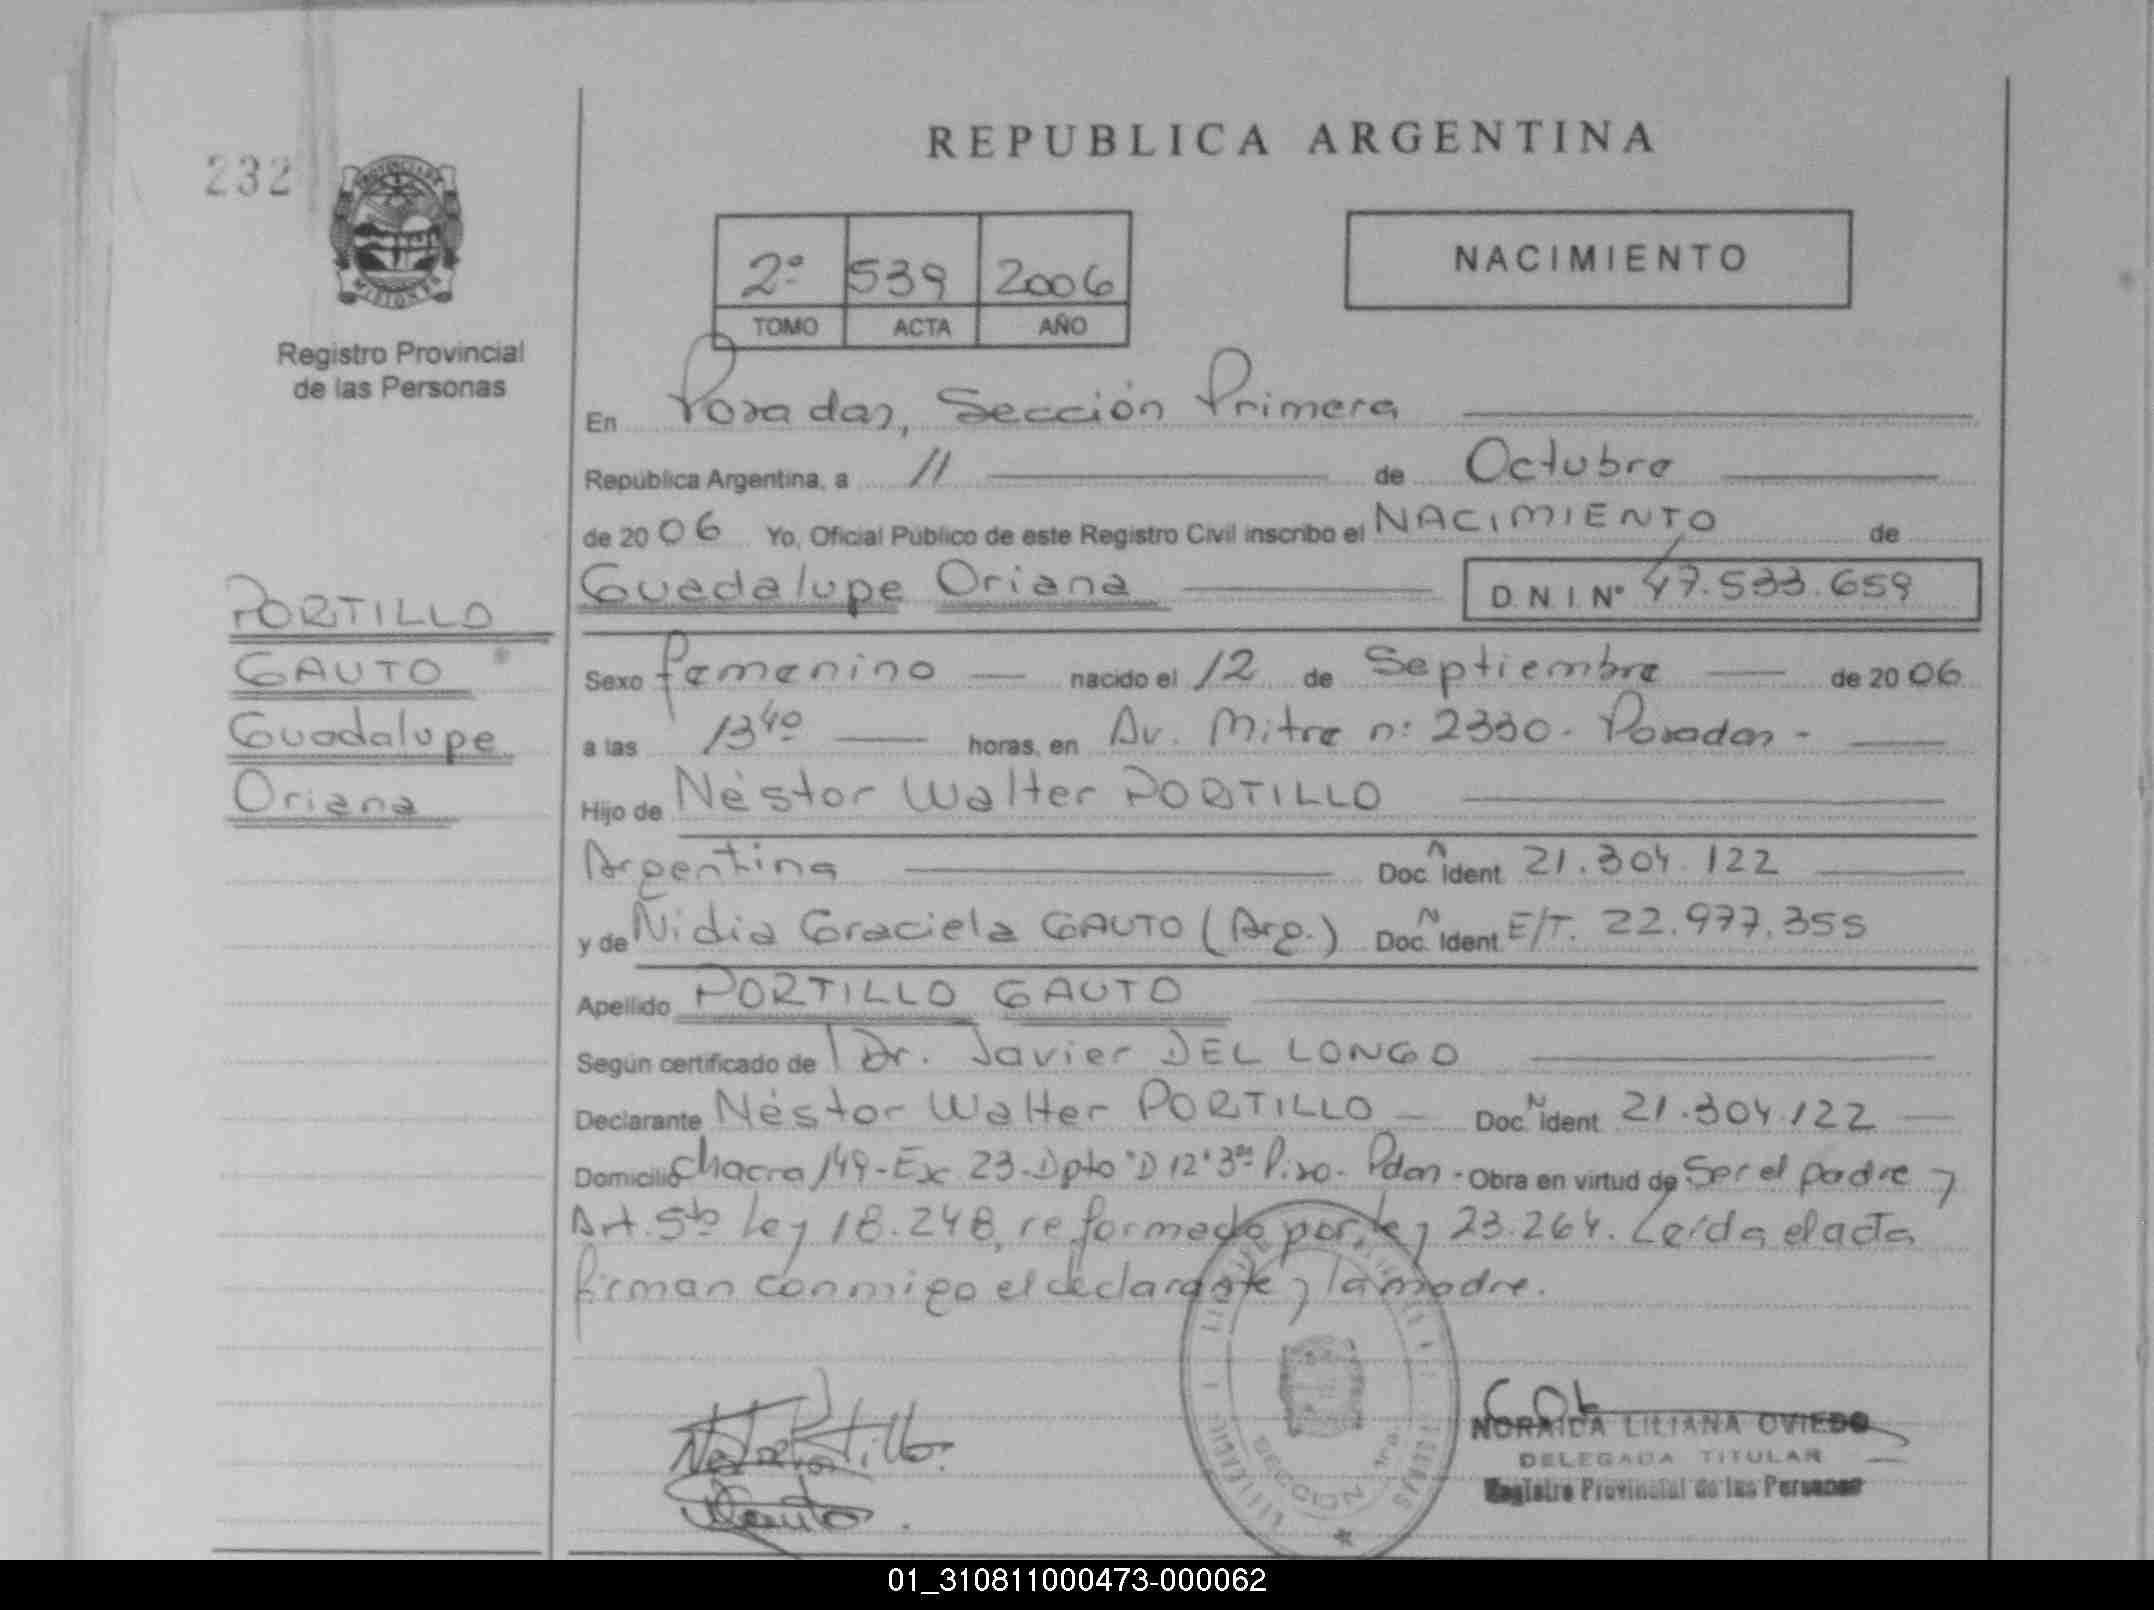 REPUBLICA ARGENTINA
232
PROVINCIA DE
MISIONES
Registro Provincial
de las Personas
2º 539 2006
TOMO ACTA AÑO
NACIMIENTO
En Posadas, Sección Primera
República Argentina, a 11 de Octubre
de 2006 Yo, Oficial Público de este Registro Civil inscribo el NACIMIENTO de
Guadalupe Oriana D.N.I. Nº 47.533.659
PORTILLO
GAUTO
Guadalupe
Oriana
Sexo femenino nacido el 12 de Septiembre de 2006
a las 13 40 horas, en Av. Mitre nº 2330 - Posadas -
Hijo de Néstor Walter PORTILLO
Argentina Doc. Ident. 21.304.122
y de Nidia Graciela GAUTO (Arg.) Doc. Ident. E/T. 22.977.355
Apellido PORTILLO GAUTO
Según certificado de Dr. Javier DEL LONGO
Declarante Néstor Walter PORTILLO Doc. Ident. 21.304.122
Domicilio Chacra 149 - Ex 23 - Dpto "D 12" 3er Piso - Pdas - Obra en virtud de Ser el padre y
Art. 5to Ley 18.248, reformado por Ley 23.264. Leída el acta
firman conmigo el declarante y la madre.
SECCION 1ra
NORAIDA LILIANA OVIEDO
DELEGADA TITULAR
Registro Provincial de las Personas
01_310811000473-000062